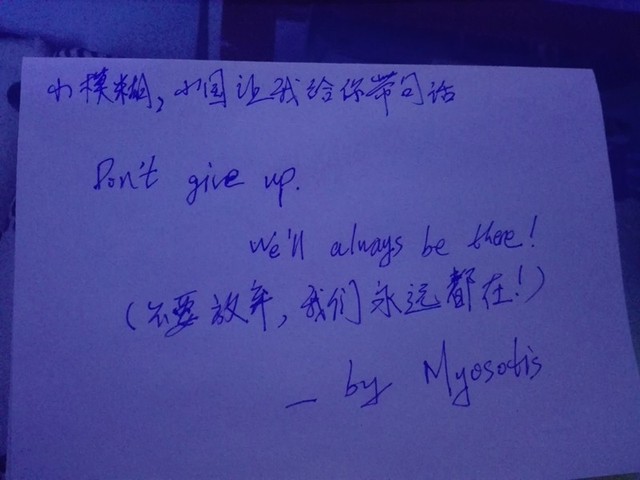 小模糊,小国让我给你带句话
Don't give up.
We'll always be there!
(不要放弃,我们永远都在!)
— by Myosotis